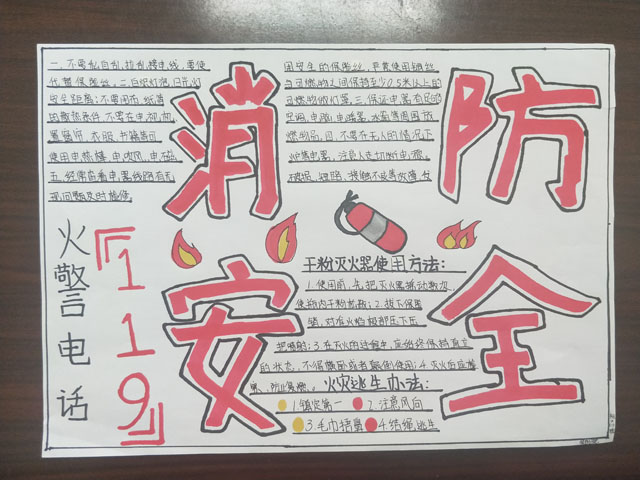 消防
安全
一、不要乱自乱拉乱接电线,要使
用安全的保险丝,严禁使用铜丝
代替保险丝。二、白炽灯泡、日光灯
与可燃物之间保持至少0.5米以上的
安全距离;不要用布、纸等
可燃物做灯罩。三、保证电器有足够
的散热条件,不要在电视、
空调、电脑、电水壶等周围放
置窗帘、衣服、书籍等可
燃物品。四、不要在无人的情况下
使用电热煲、电吹风、电磁
炉等电器,注意人走切断电源。
五、经常查看电器线路有无
破损、短路、接触不良等故障,发
现问题及时维修。
火警电话
『119』
干粉灭火器使用方法:
1.使用前,先把灭火器摇动数次,
使瓶内干粉松散;2.拔下保险
销,对准火焰根部压下压
把喷射;3.在灭火的过程中,应始终保持直立
的状态,不得横卧或者颠倒使用;4.灭火后应
火灾逃生办法:
1.镇定第一
2.注意风向
3.毛巾捂鼻
4.结绳逃生